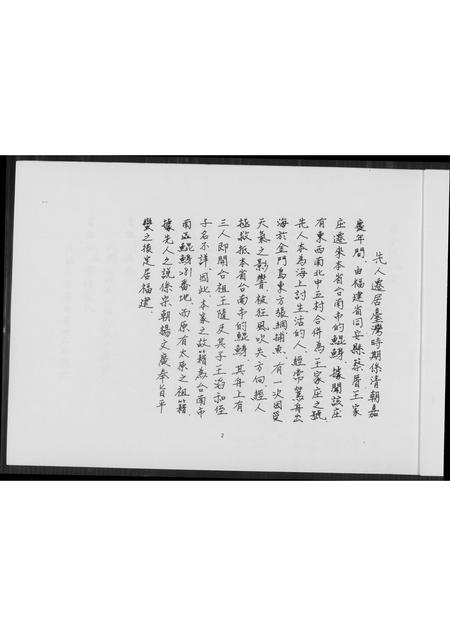 先人遷居臺灣時期係清朝嘉
慶年間，由福建省同安縣蔡厝王家
庄遷來本省台南市的鯤鯓，據聞該庄
有東西南北中五村合併為王家庄之號，
先人本為海上討生活的人，經常駕舟出
海於金門島東方張網捕魚，有一次因受
天氣之影響，被狂風吹失方向，經人
拯救抵本省台南市的鯤鯓，其舟上有
三人即開台祖王隨及其子王治和侄
子名不詳因此本家之故籍為台南市
南區鯤鯓31番地，而原有太原之祖籍
據先人之說係宋朝楊文廣奉旨平
蠻之後定居福建．
2